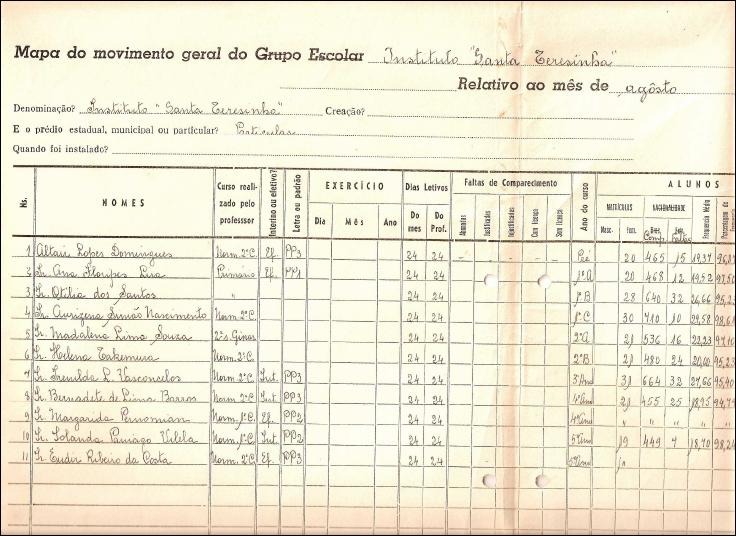 Mapa do movimento geral do Grupo Escolar Instituto "Santa Teresinha"
Relativo ao mês de agôsto
Denominação? Instituto "Santa Teresinha" Creação?
E o prédio estadual, municipal ou particular? Particular
Quando foi instalado?
Ns. NOMES Curso realizado pelo professor Interino ou efetivo? Letra ou padrão EXERCÍCIO Dias Letivos Faltas de Comparecimento Ano do curso ALUNOS
Dia Mês Ano Do mes Do Prof. Abonadas Justificadas Injustificadas Com licença Sem licença MATRÍCULAS NACIONALIDADE Frequencia Média Porcentagem de
Masc. Fem. Comp. Faltas
1 Altair Lopes Domingues Norm. 2ºC. Ef. PP3 24 24 - - - - - Pré 20 465 15 19,37 96,8
2 Sr. Ana Floripes Lira Primário Ef. PP1 24 24 1ºA 20 468 12 19,52 97,50
3 Sr. Otília dos Santos " 24 24 1ºB 28 640 32 26,66 95,2
4 Sr. Aurizena Simão Nascimento Norm. 2ºC. 24 24 1ºC 30 710 10 29,58 98,6
5 Sr. Madalena Lima Souza 2ºs. Ginas. 24 24 2ºA 21 536 16 22,23 97,10
6 Sr. Helena Takemura Norm. 2ºC. 24 24 2ºB 21 480 24 20,00 95,23
7 Sr. L. Vasconcelos Norm. 2ºC. Int. PP3 24 24 3ºAno 31 664 32 27,66 95,40
8 Sr. Bernadete de Lima Barros Norm. 2ºC. Int PP3 24 24 4ºAno 21 455 25 18,95 94,7
9 Sr. Margarida Norm. 1ºC. Ef. PP2 24 24 4ºAno " " " " "
10 Sr. Iolanda Paniago Vilela Norm. 1ºC. Int. PP2 24 24 5ºAno 19 449 7 18,70 98,24
11 Sr. Eudir Ribeiro da Costa Norm. 2ºC. Ef. PP3 24 24 5ºAno